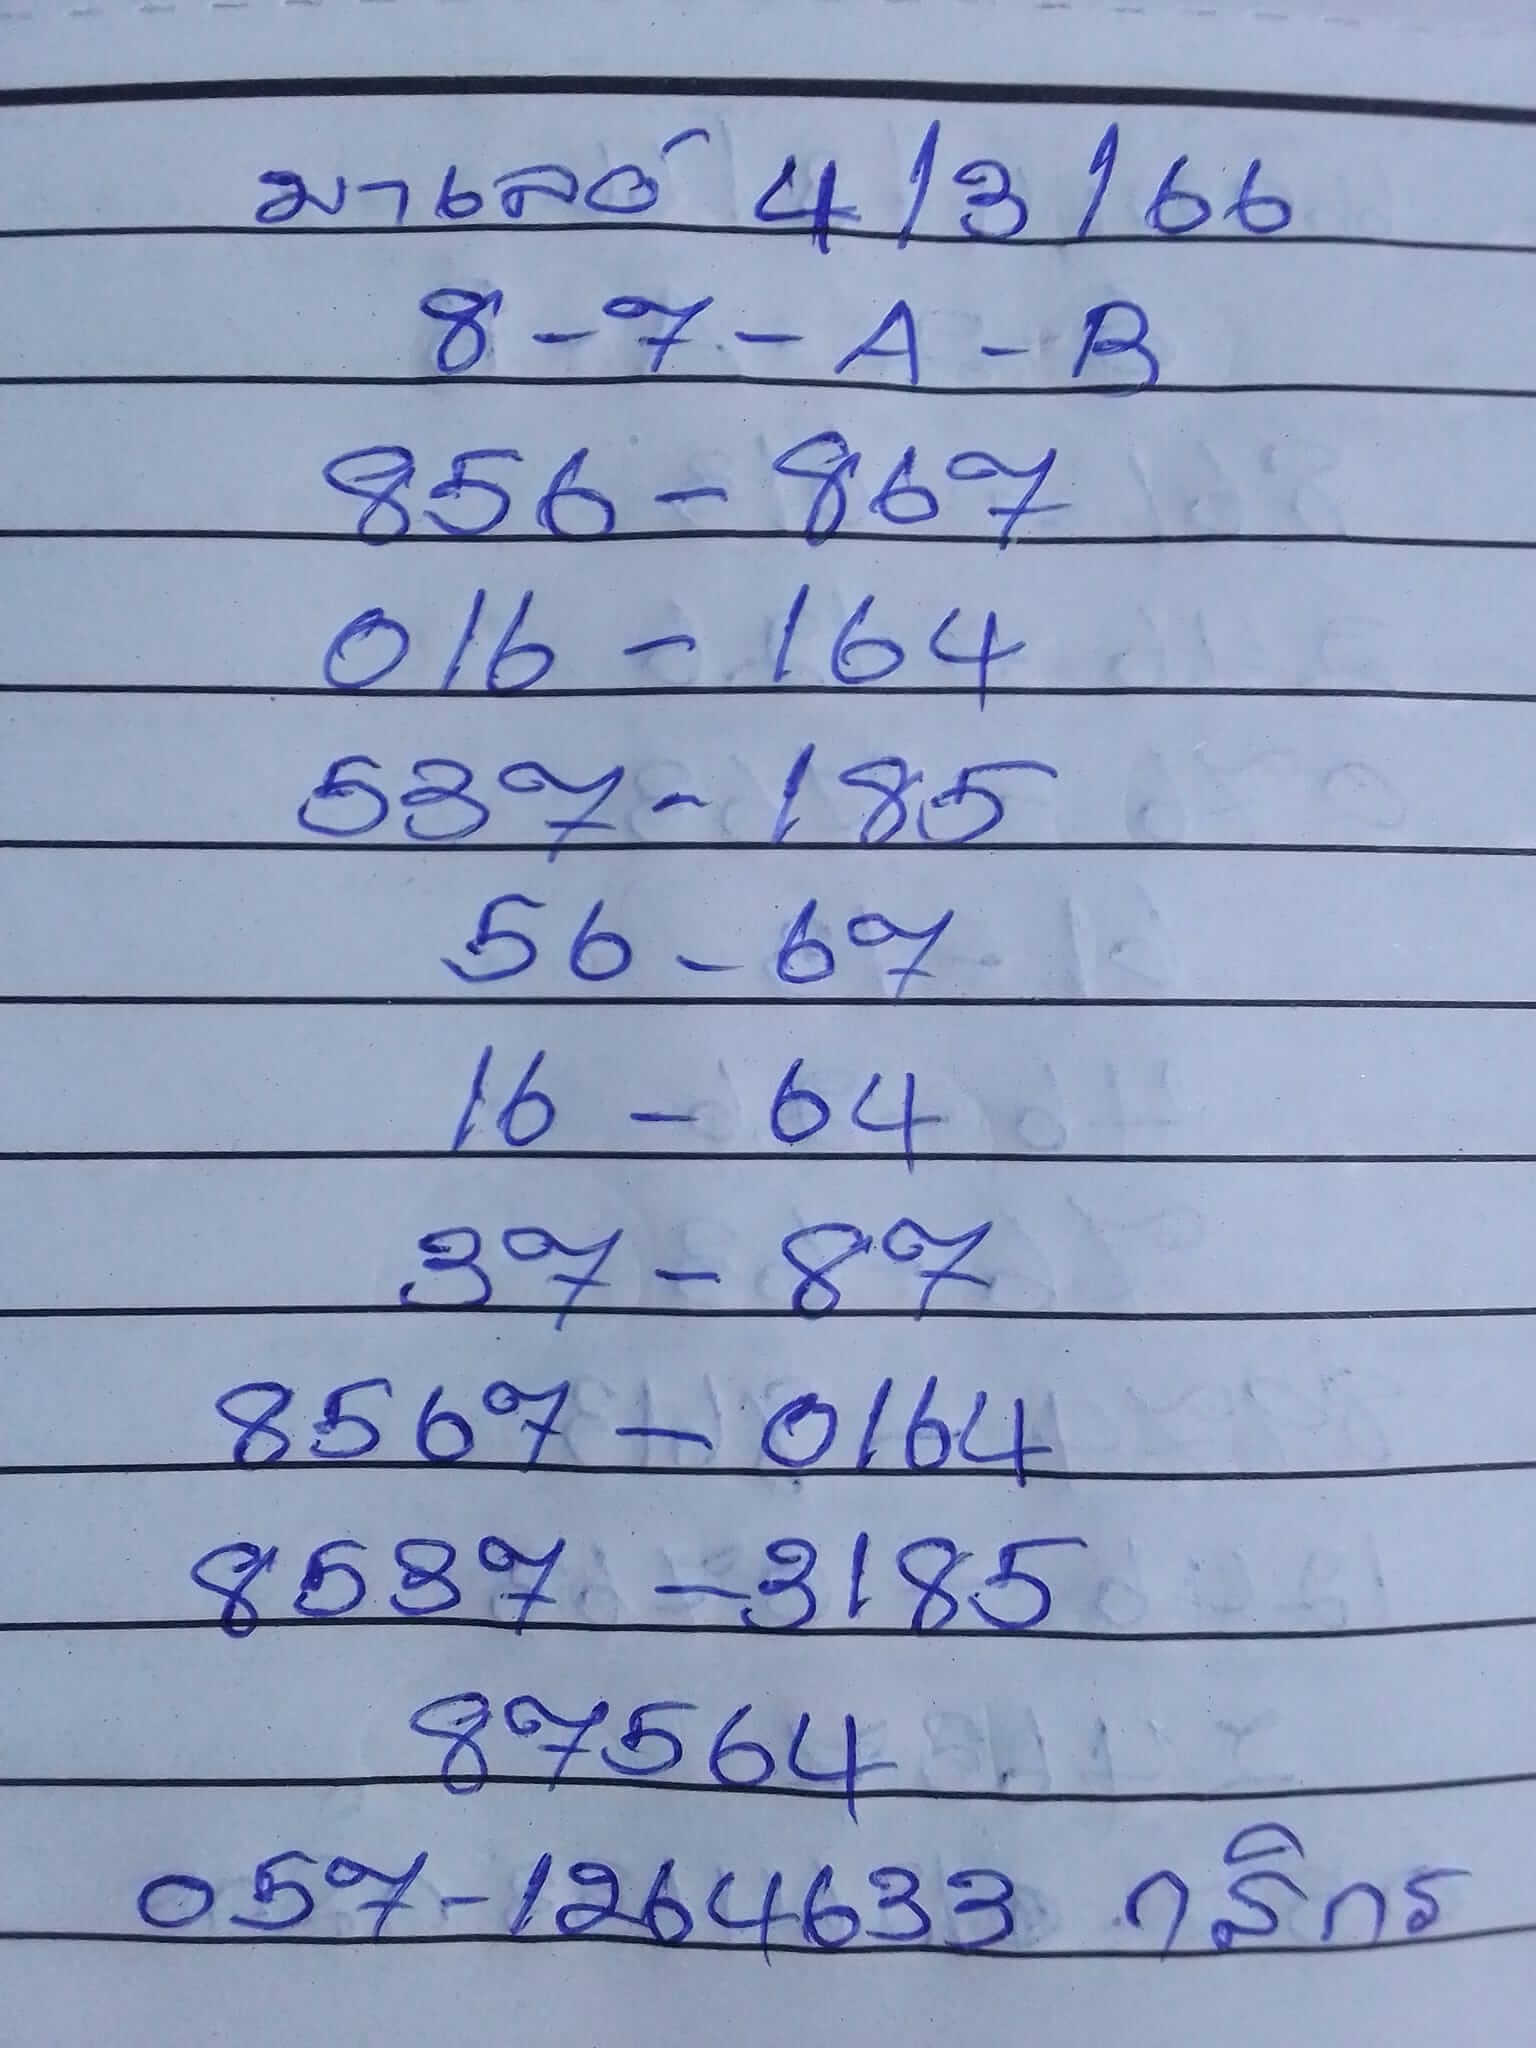 มาเลย์ 4/3/66
8-7-A-B
856-867
016-164
537-185
56-67
16-64
37-87
8567-0164
8537-3185
87564
057-1264633 กสิกร